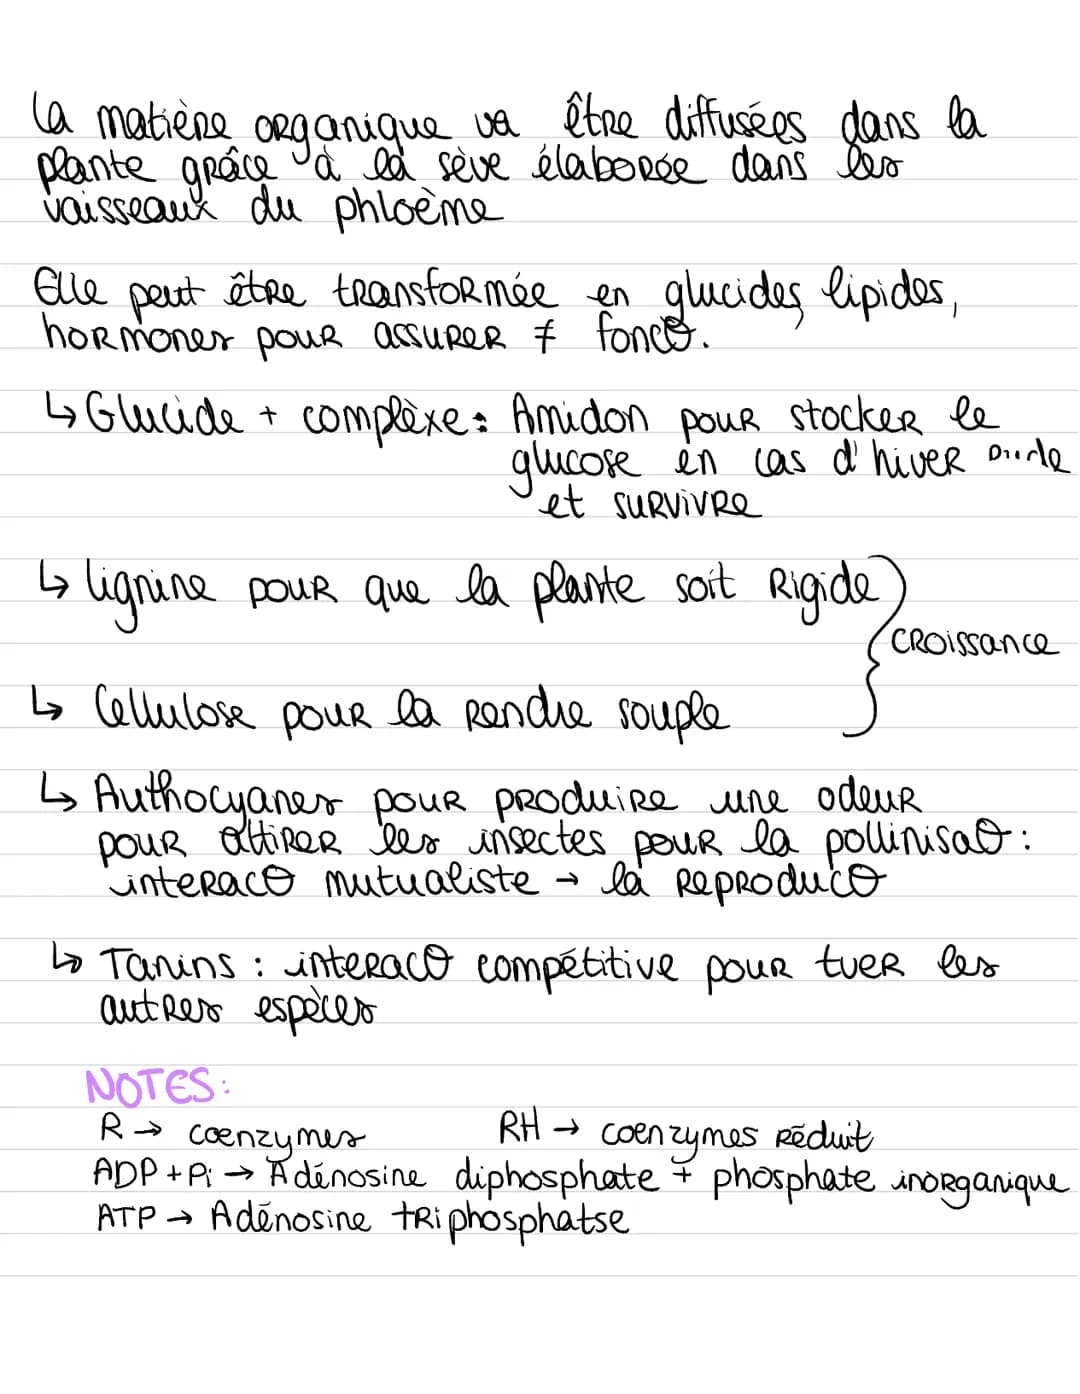 La matière organique va être diffusées dans la
plante grâce à la sève élaborée dans les
vaisseaux du phloème
Elle peut être transformée en glucides, lipides,
hormones pour assurer ≠ fonct⊖.
↳ Glucide + complèxe : Amidon pour stocker le
glucose en cas d'hiver
et survivre
↳ lignine pour que la plante soit Rigide
croissance
↳ Cellulose pour la rendre souple
↳ Authocyanes pour produire une odeur
pour attirer les insectes pour la pollinisat⊖ :
interact⊖ mutualiste → la reproduct⊖
↳ Tanins : interact⊖ compétitive pour tuer les
autres espèces
NOTES :
R → coenzymes RH → coenzymes réduit
ADP + Pi → Adénosine diphosphate + phosphate inorganique
ATP → Adénosine triphosphatse